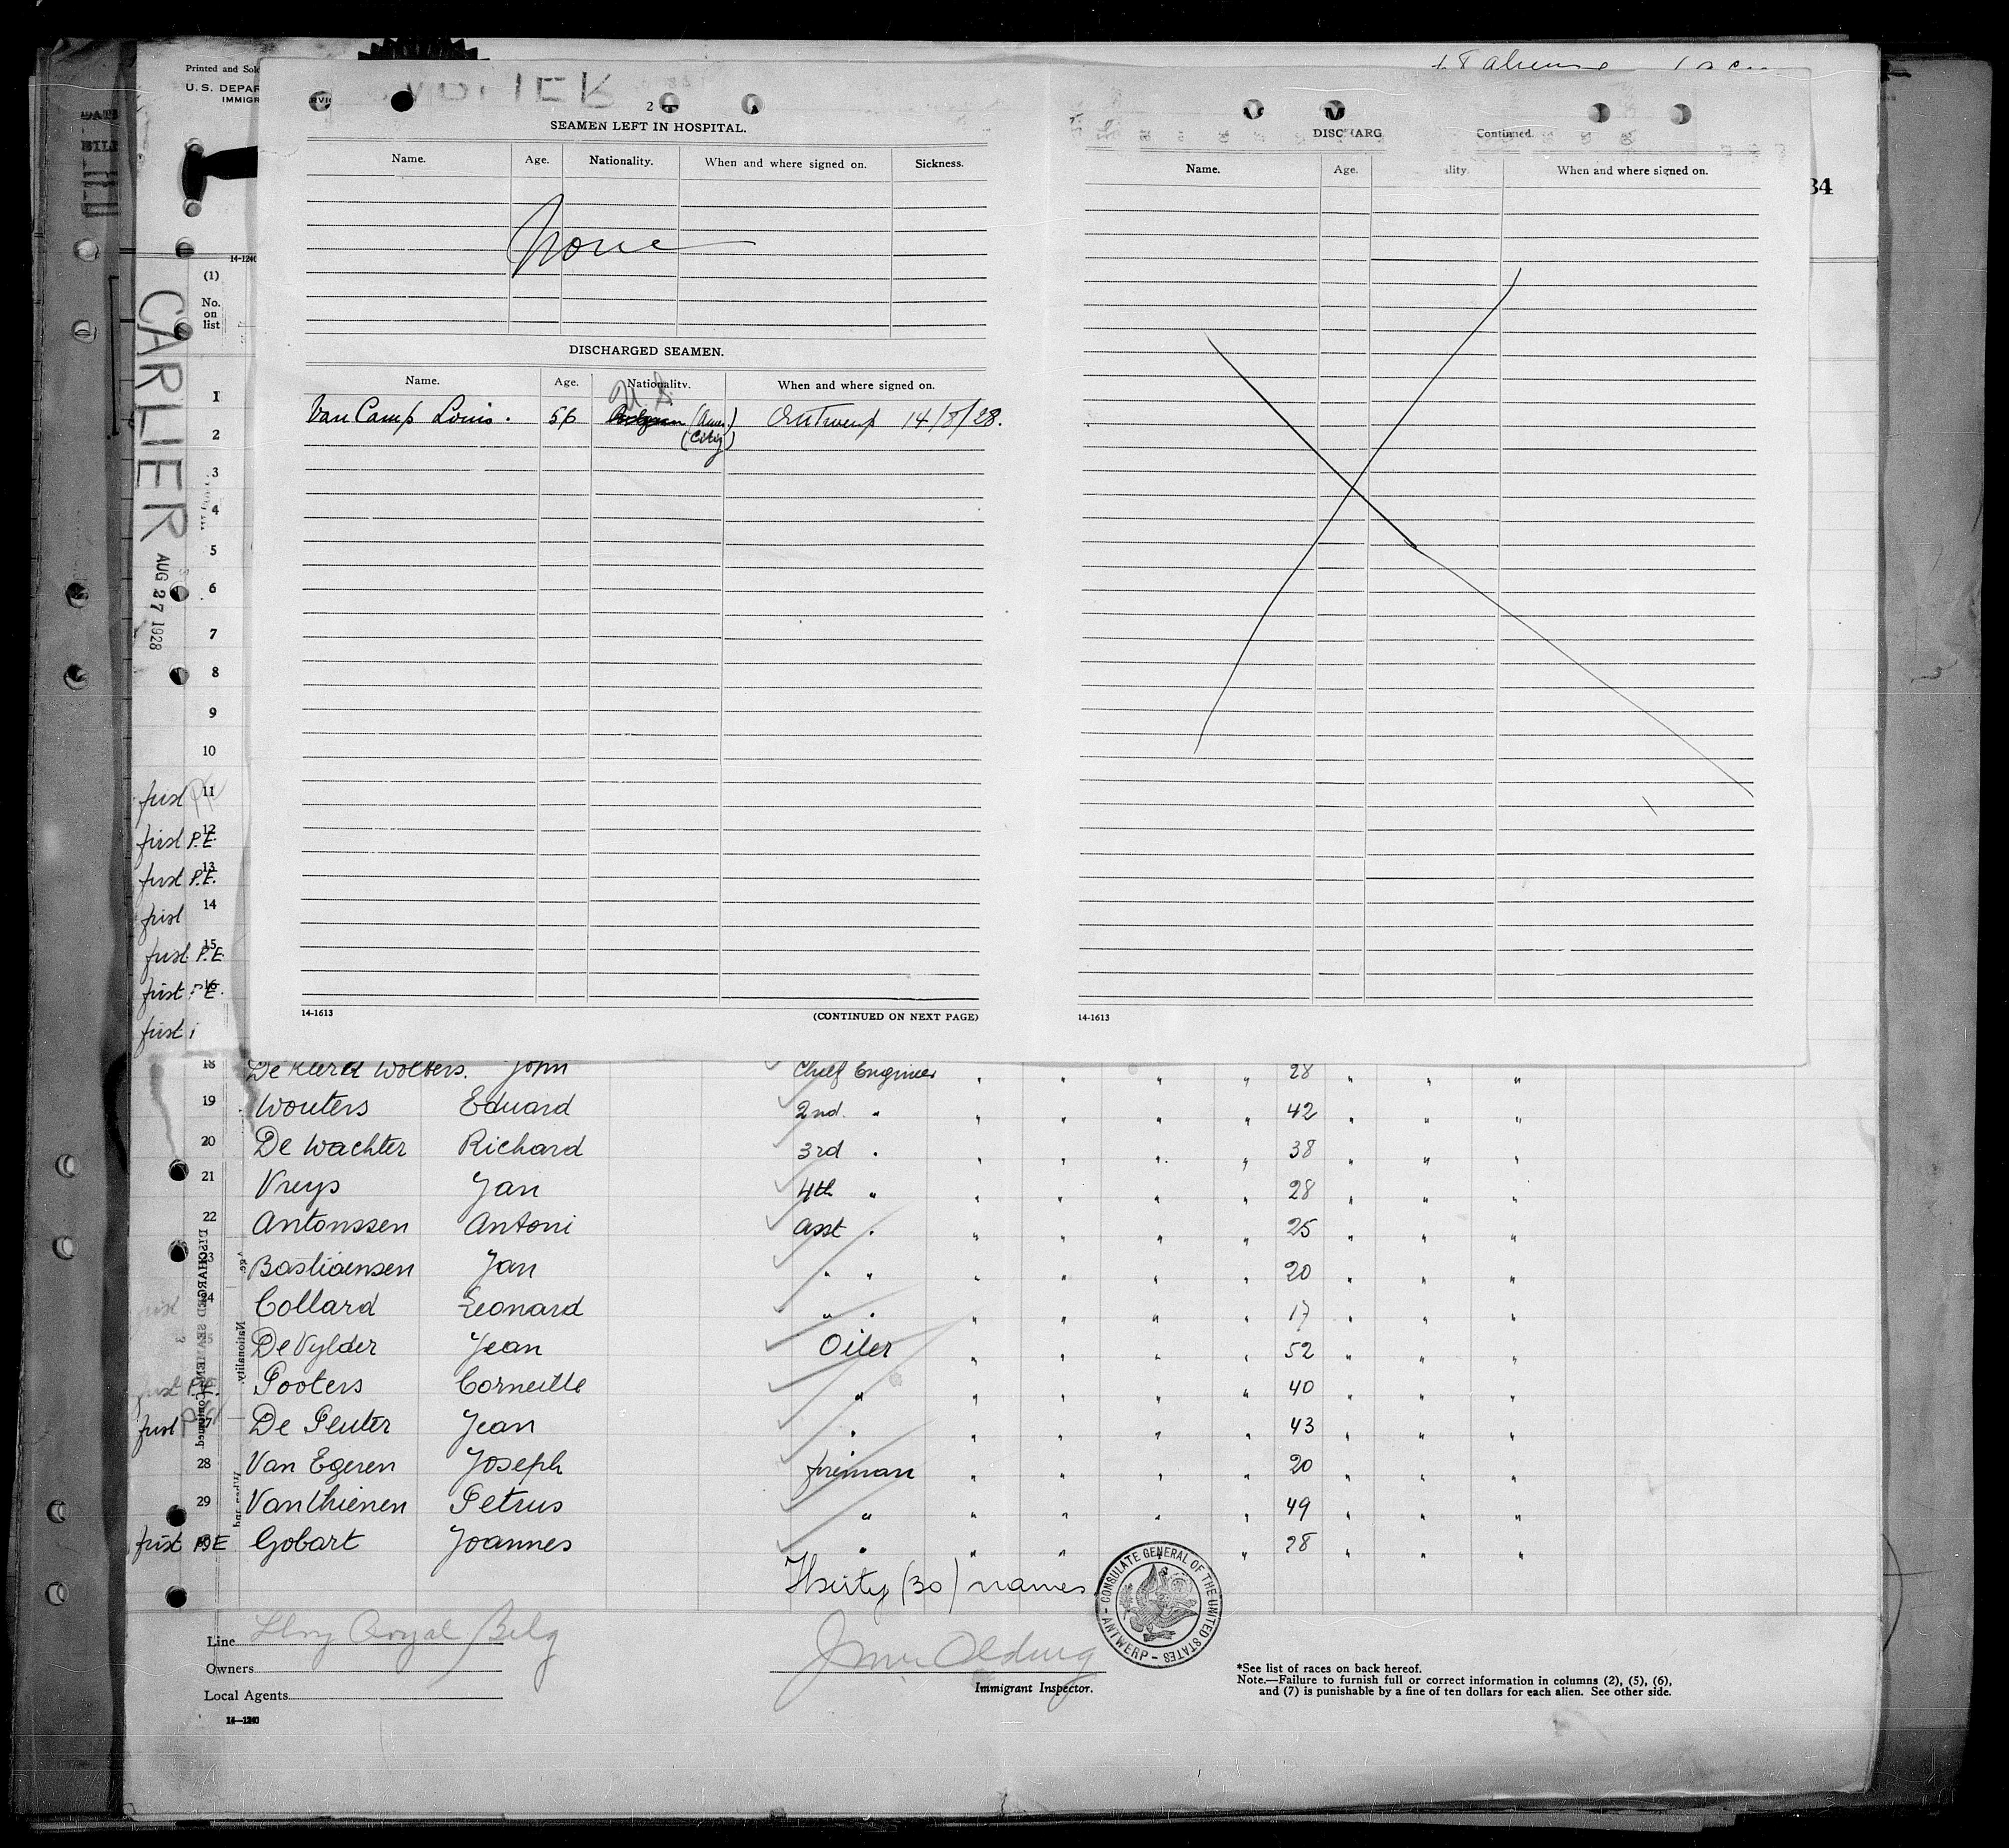 Printed and Sol
U. S. DEPAR
IMMIGR
34
14-1240
(1)
No.
on
list
CARLIER
AUG 27 1928
2
SEAMEN LEFT IN HOSPITAL.
Name. Age. Nationality. When and where signed on. Sickness.
None
DISCHARGED SEAMEN.
Name. Age. Nationality. When and where signed on.
U.S.
Van Camp Louis. 56 (Amer.) Antwerp 14/8/28.
(City)
14-1613 (CONTINUED ON NEXT PAGE)
DISCHARG Continued.
Name. Age. ality. When and where signed on.
14-1613
1
2
3
4
5
6
7
8
9
10
first 11
first P.E. 12
first P.E. 13
first 14
first P.E. 15
first P.E. 16
first
18 Wolters. John Chief Engineer " " " " 28 " " "
19 Wouters Eduard 2nd. " " " " " 42 " " "
20 De Wachter Richard 3rd " " " " " 38 " " "
21 Vreys Jan 4th " " " " " 28 " " "
22 Antonssen Antoni Asst " " " " " 25 " " "
23 Bastiaensen Jan " " " " " " 20 " " "
24 Collard Leonard " " " " " " 17 " " "
25 De Vylder Jean Oiler " " " " 52 " " "
first P.E. Pooters Corneille " " " " " 40 " " "
first 27 De Peuter Jean " " " " " 43 " " "
28 Van Egeren Joseph fireman " " " " 20 " " "
29 Van Thienen Petrus " " " " " 49 " " "
first P.E. Gobart Joannes " " " " 28 " " "
Thirty (30) names
CONSULATE GENERAL OF THE UNITED STATES - ANTWERP -
Line Royal Belg
Owners
Local Agents
Immigrant Inspector.
*See list of races on back hereof.
Note.—Failure to furnish full or correct information in columns (2), (5), (6),
and (7) is punishable by a fine of ten dollars for each alien. See other side.
14-1240